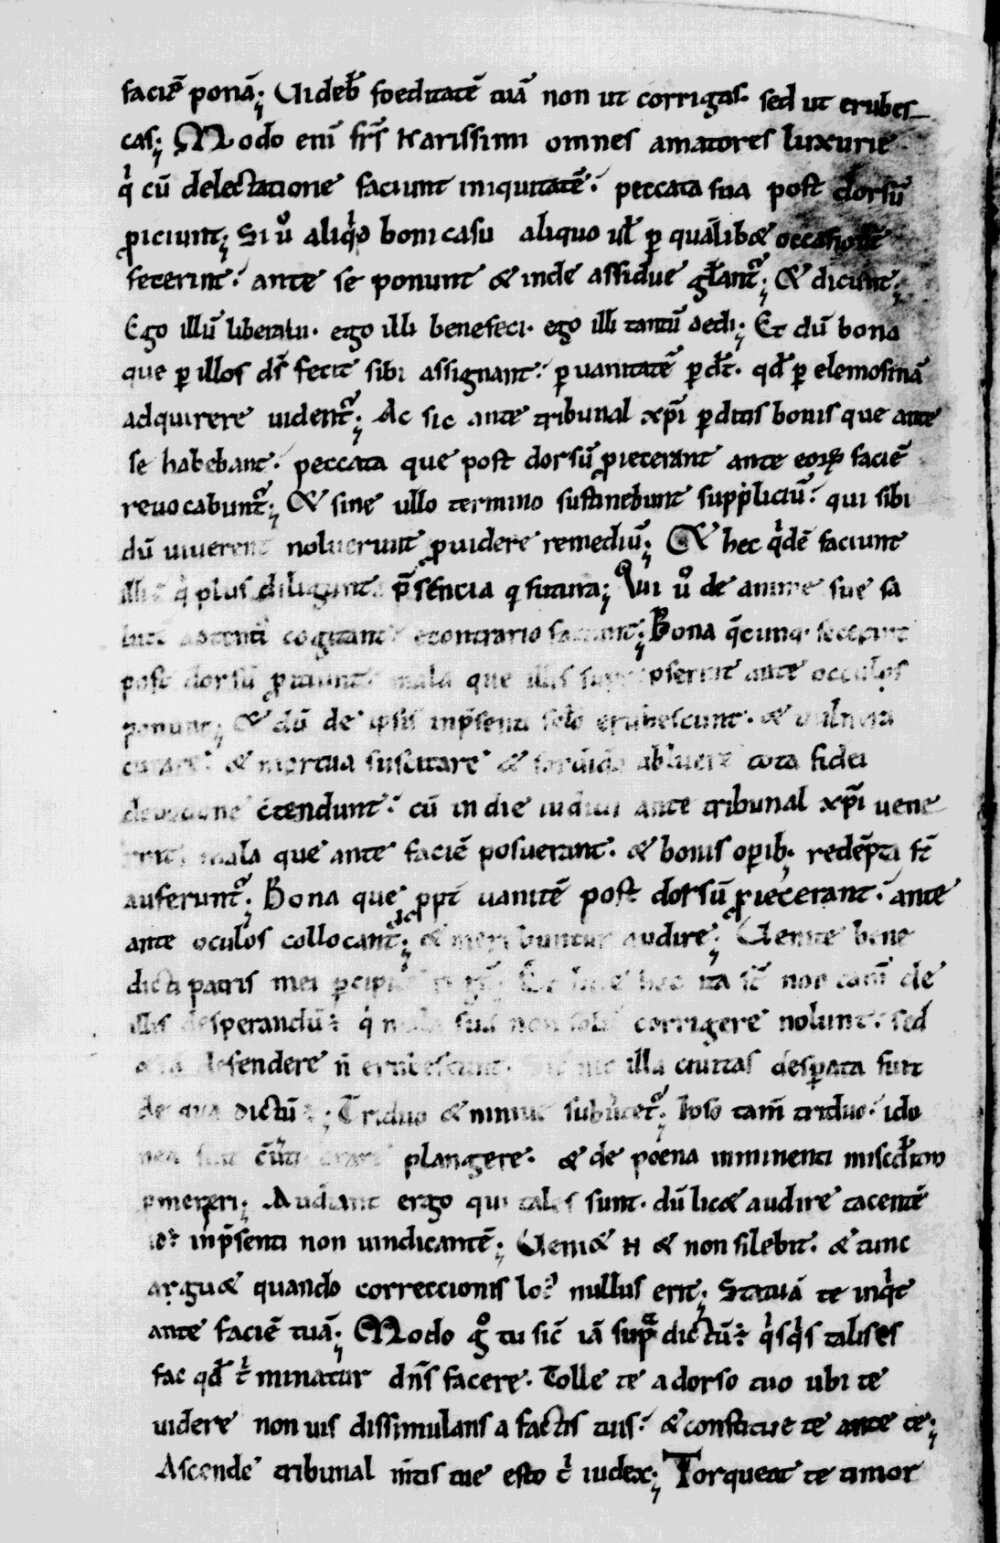 faciē ponā; Uideb̄ foeditatē tuā non ut corrigas. sed ut erubes
cas; Modo eni͂ fr̄s karissimi omnes amatores luxurie
qͥ cū delectatione faciunt iniquitatē. peccata sua post dorsū
ꝓiciunt; Si uͦ aliqͥd boni casu aliquo ul̄ ꝑ qualibæ occasione
fecerint. ante se ponunt & inde assidue gl̄ant᷑; & dicunt;
Ego illū liberaui. ego illi benefeci. ego illi tantū dedi; Et dū bona
que ꝑ illos ds̄ fecit sibi assignant. ꝑ uanitatē ꝑdt̄. qd̄ ꝑ elemosinā
adquirere uident᷑; Ac sic ante tribunal xp̄i ꝑditis bonis que ante
se habebant. peccata que post dorsū ꝓiecerant ante eoꝝ faciē
reuocabunt᷑; & sine ullo termino sustinebunt suppliciū. qui sibi
dū uiuerent noluerunt ꝓuidere remediū; & hec qͥdē faciunt
illi qͥ plus diligunt p̄sencia q futura; Qui uͦ de anime sue sa
cogitant econtrario faciunt; Bona q̄cunq. fecerint
post dorsū ꝓiciunt. mala que illis ante occulos
ponunt; & dū de ipsis inp̄senti erubescunt. & uulnera
curare. & mortua suscitare & sordida abluere tota fidei
deuocione c̄tendunt. cū in die iudicii ante tribunal xp̄i uene
rint mala que ante faciē posuerant. & bonis oꝑib. redēpti st̄
auferunt᷑; Bona que ꝓpt uanitē post dorsū ꝓiecerant. ante
ante oculos collocant᷑; & merebuntur audire; Uenite bene
dicti patris mei ꝑcipite hec ita st̄ non tam̄ de
illis desperandū: qͥ mala sua non solū corrigere nolunt. sed
defendere n̄ erubescunt. illa ciuitas desꝑata fuit
de qua dictū; Triduo & niniue subuͥtet᷑; Ipso tam̄ triduo.
plangere. & de poena imminenti miscd̄iam
ꝓmereri; Audiant ergo qui tales sunt. dū licæ audire tacentē
inp̄senti non uindicantē; Ueniæ n & non silebit. & tunc
arguæ quando correccionis lo: nullus erit; Statuā te inqͥt
ante faciē tuā; Modo gͦ tu sic̄ iā supͣ dictū: qͥsqͥs talis es
fac qd̄ tͥ minatur dn̄s facere. Tolle te a dorso tuo ubi te
uidere non uis dissimulans a factis tuis. & constitue te ante te;
Ascende tribunal m̄tis tue esto tͥ iudex; Torqueat te timor